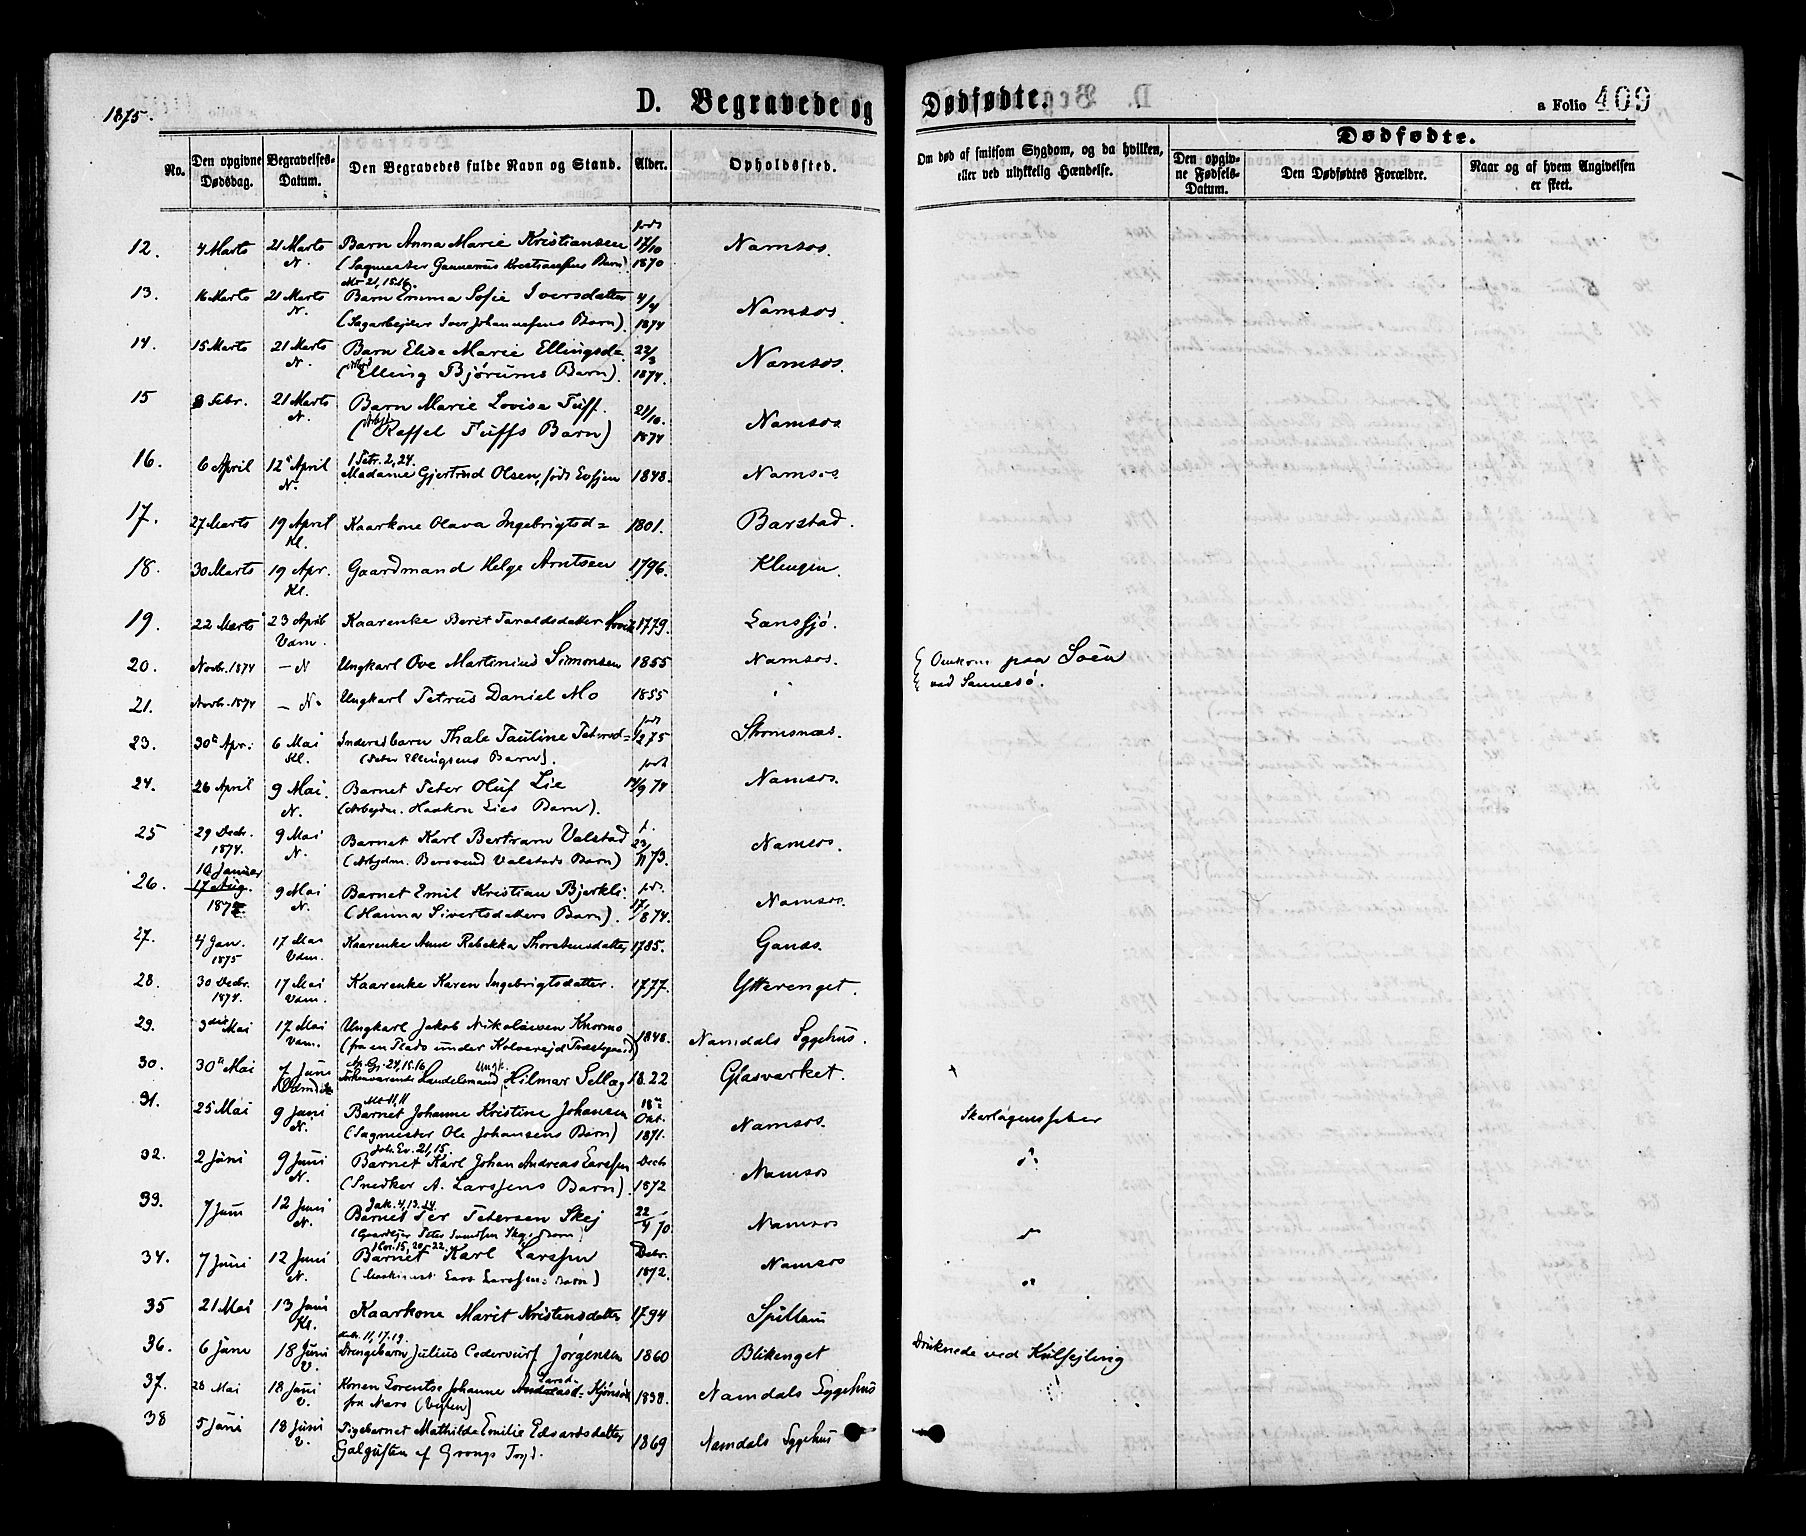 1875.
D. Begravede og Dødfødte.
a Folio 409
Dødfødte.
No.
Den opgivne Dødsdag.
Begravelses-Datum.
Den Begravedes fulde Navn og Stand.
Alder.
Opholdssted.
Om død af smitsom Sygdom, og da hvilken, eller ved ulykkelig Hændelse.
Den opgivne Fødsels-Datum.
Den Dødfødtes Forældre.
Naar og af hvem Angivelsen er skeet.
12. 4 Marts 21 Marts N. Barn Anna Marie Kristiansen født 17/10 1870 Namsos.
(Sagmester Kristiansens Barn)
Mt 21, 15.16.
13. 16 Marts 21 Marts N. Barn Emma Sofie Iversdatter 4/4 1874 Namsos.
(Sagarbejder Iver Johannesens Barn).
14. 15 Marts 21 Marts N. Barn Elise Marie Ellingsd= 22/3 1874. Namsos.
(Elling Bjørums Barn).
15 8 Febr. 21 Marts N. Barn Marie Lovise Tuff. 21/10. 1874 Namsos
(Raffel Tuffs Barn)
1 Petr. 2, 24.
16. 6 April 12 April N. Madame Gjertrud Olsen, født 1848. Namsos
17. 27 Marts 19 April Kl. Kaarkone Olava Ingebrigtsd= 1801. Barstad.
18. 30 Marts 19 Apr. Kl. Gaardmand Helge Arntsen 1796. Klengen.
19. 22 Marts 23 April Vdm. Kaarenke Berit Taraldsdatter 1779. Lanssjø.
20. Novb. 1874 – N Ungkarl Ove Martinius Simonsen 1855 Namsos. Omkom paa Søen
21. Novb. 1874 – N. Ungkarl Petrus Daniel Mo 1855 " ved Sannesø.
23. 30 Apr. 6 Mai Kl. Inderstbarn Thale Pauline Petersd= født 1/2 75 Strømsnæs.
(Peter Ellingsens Barn).
24. 26 April 9 Mai. N. Barnet Peter Oluf Lie født /9 74 Namsos.
(Arbejdm. Haakon Lies Barn).
25 29 Decbr. 1874. 9 Mai N. Barnet Karl Bertram Valstad f. 23/11 73. Namsos.
(Arbejdm. Bersvend Valstads Barn)
26. 10 Januar 17 Aug. 187 9 Mai N. Barnet Emil Kristian Bjerkli født 17/8 74. Namsos.
(Hanna Sivertsdatters Barn).
27. 4 Jan. 1875 17 Mai Vdm. Kaarenke Anne Rebekka Thorstensdatter 1785. Ganss.
28. 30 Decbr. 1874. 17 Mai Vdm. Kaarenke Karen Ingebrigtsdatter. 1777. Ytterenget.
29. 3die Mai 17 Mai Vdm. Ungkarl Jakob Nikolaisen Knormo 1848. Namdals Sygehus.
(fra en Plads under Kolvereid Præstegaard)
30. 30 Mai 7 Juni forhenværende Handelsmand, Ungk. Hilmar Sellæg 1822 Glasværket.
Mt 11, 11
31. 25 Mai 9 Juni N. Barnet Johanne Kristine Johansen 18 Okt. 1871. Namsos. Skarlagensfeber
(Sagmester Ole Johansens Barn)
Joh. Ev. 21, 15.
32. 2 Juni 9 Juni N. Barnet Karl Johan Andreas Larssen Decb 1872 Namsos do
(Snedker A. Larssens Barn).
Jak. 4, 13.14
33. 7 Juni 12 Juni N. Barnet Per Petersen Skej 22/4 70 Namsos do
(Gaardejer Peter Barn)
1 Kor. 15, 20–22.
34. 7 Juni 12 Juni N. Barnet Karl Larssen Decbr. 1872. Namsos do
(Maskinist Lars Larssens Barn)
35 21 Mai 13 Juni Kl. Kaarkone Marit Kristensdatter 1794 Spillum
11, 17.19.
36. 6 Juni 18 Juni V. Drengebarn Julius Cedervurf Jørgensen 1860 Blikenget Druknede ved Kvilsejling
37. 28 Mai 18 Juni V. Konen Lorentse Johanne Larsd= 1838. Namdals Sygehus
fra Nærø (Vejten)
38 5 Juni 18 Juni V. Pigebarnet Mathilde Emilie Edvardsdatter 1869 Namdals Sygehus
Galguften af Grongs Prgd.